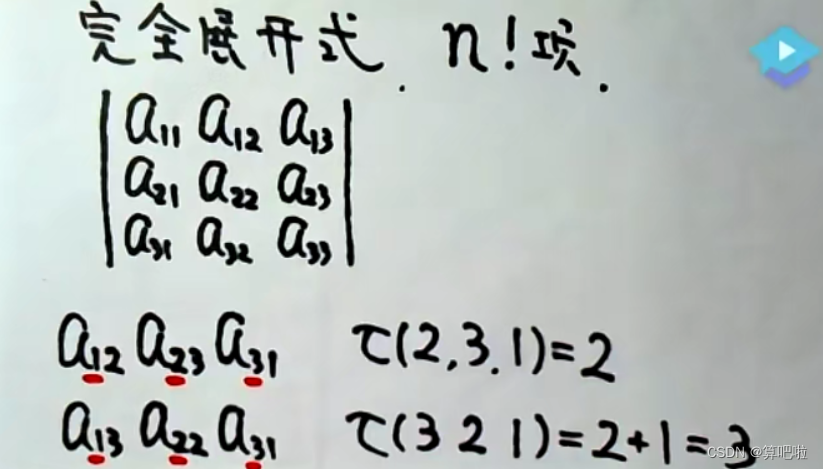 完全展开式. n!项.
a₁₁ a₁₂ a₁₃
a₂₁ a₂₂ a₂₃
a₃₁ a₃₂ a₃₃
a₁₂ a₂₃ a₃₁ τ(2,3,1)=2
a₁₃ a₂₂ a₃₁ τ(3 2 1)=2+1=3
CSDN @算吧啦